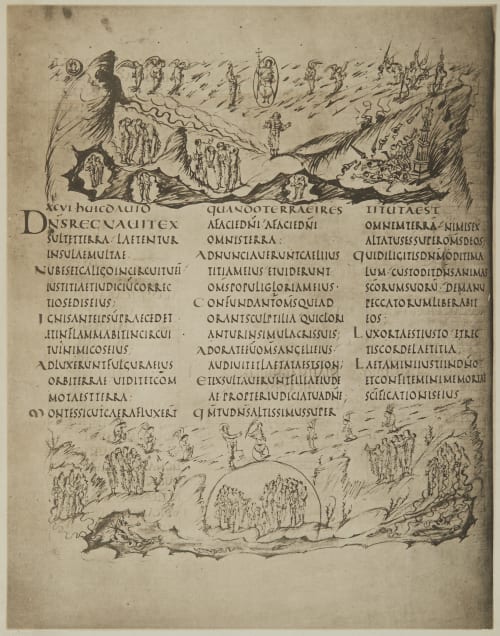 XCVI HUIC DAVID QUANDO TERRA EI RES TITUTA EST
DNS REGNAUIT EX
SULTET TERRA LAETENTUR
INSULAE MULTAE
NUBES ET CALIGO IN CIRCUITU EIUS
IUSTITIA ET IUDICIU CORREC
TIO SEDIS EIUS
IGNIS ANTE IPSU PRAECEDET
ET INFLAMMABIT IN CIRCUI
TU INIMICOS EIUS
ADLUXERUNT FULGURA EIUS
ORBI TERRAE UIDIT ET COM
MOTA EST TERRA
MONTES SICUT CAERA FLUXERT
A FACIE DNI A FACIE DNI
OMNIS TERRA
ADNUNCIAUERUNT CAELI IUS
TITIAM EIUS ET UIDERUNT
OMS POPULI GLORIAM EIUS
CONFUNDANTUR OMS QUI AD
ORANT SCULPTILIA QUI GLORI
ANTUR IN SIMULACRIS SUIS
ADORATE EUM OMS ANGELI EIUS
AUDIUIT ET LAETATA EST SION
ET EXSULTAUERUNT FILIAE IUDE
AE PROPTER IUDICIA TUA DNE
QM TU DNS ALTISSIMUS SUPER
OMNEM TERRA NIMIS EX
ALTATUS ES SUPER OMS DEOS
QUI DILIGITIS DNM ODITE MA
LUM CUSTODIT DNS ANIMAS
SCORUM SUORU DE MANU
PECCATORUM LIBERABIT
EOS
LUX ORTA EST IUSTO ET REC
TIS CORDE LAETITIA
LAETAMINI IUSTI IN DNO
ET CONFITEMINI MEMORIAE
SCIFICATIONIS EIUS